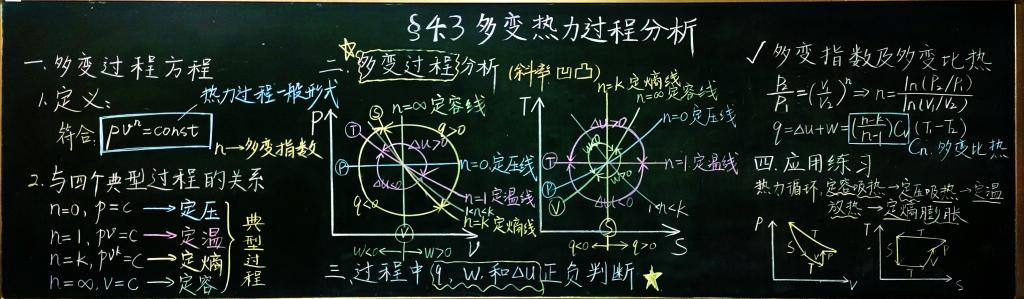 §4.3 多变热力过程分析
一、多变过程方程
1.定义:
热力过程一般形式
符合: pvⁿ=const
n→多变指数
2.与四个典型过程的关系
n=0, p=c → 定压
n=1, pv=c → 定温
n=k, pvᵏ=c → 定熵
n=∞, v=c → 定容
典型过程
二、多变过程分析 (斜率 凹凸)
P
n=∞定容线
q>0
S
T
Δu>0
P
n=0定压线
Δu<0
n=1定温线
1<n<k
q<0
n=k定熵线
V
V
w<0 ← → w>0
T
n=k定熵线
n=∞定容线
n=0定压线
Δu>0
w>0
T
n=1定温线
P
V
1<n<k
S
S
q<0 ← → q>0
三、过程中q、w和Δu正负判断
✓多变指数及多变比热
P₂/P₁=(V₁/V₂)ⁿ ⇒ n=ln(P₂/P₁)/ln(V₁/V₂)
q=Δu+w=(n-k/n-1)Cᵥ(T₁-T₂)
Cn.多变比热
四.应用练习
热力循环,定容吸热→定压吸热→定温
放热→定熵膨胀
P
S
V
P
T
V
T
S
T
P
V
T
S